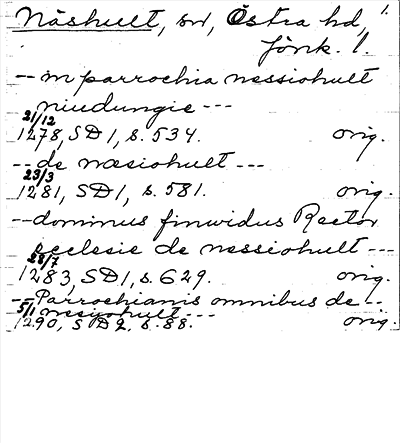 Näshult, sn, Östra hd, 1.
Jönk. l.
-- in parrochia nessiohult
niudungie ---
21/12
1278, SD 1, s. 534. orig.
-- de næsiohult ---
23/3
1281, SD 1, s. 581. orig.
-- dominus finwidus Rector
ecclesie de nessiohult ---
28/7
1283, SD 1, s. 629. orig.
-- Parrochianis omnibus de --
nesiohult ---
5/1
1290, SD 2, s. 88. orig.